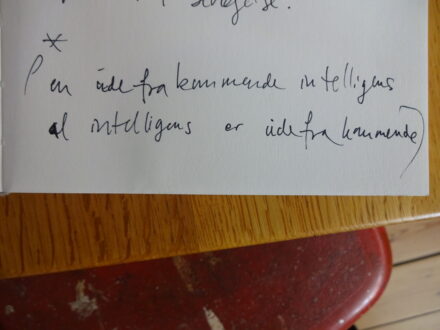 i bevægelse.
*
(en udefrakommende intelligens
al intelligens er udefrakommende)